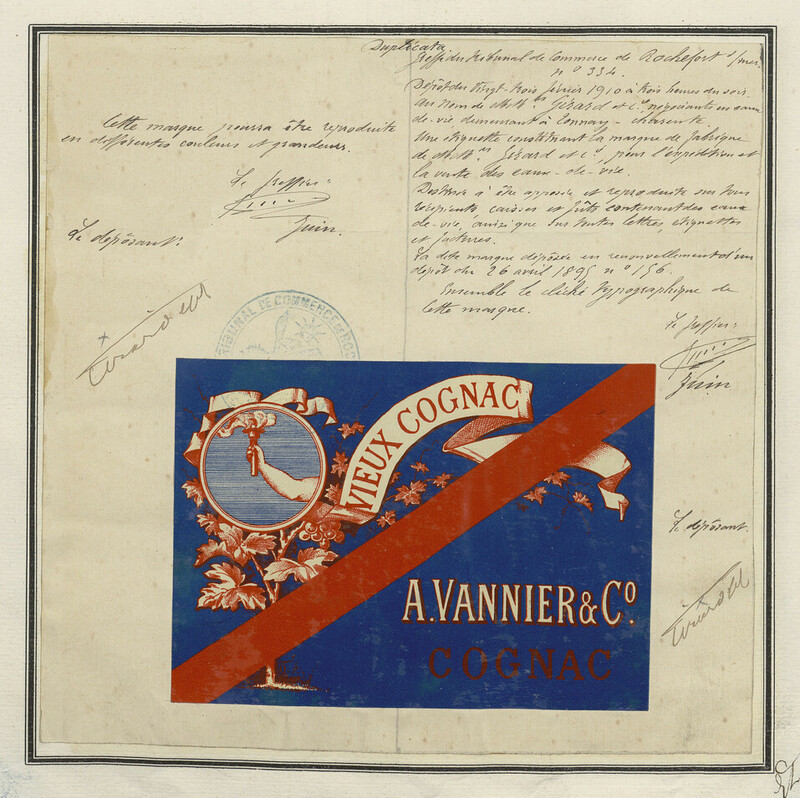 Duplicata
Greffe du Tribunal de Commerce de Rochefort s/mer
n° 334.
Dépôt du vingt-trois février 1910 à trois heures du soir
au nom de MM. Girard et Cie négociants en eaux-
de-vie demeurant à Tonnay-Charente.
Une étiquette constituant la marque de fabrique
de MM. Girard et Cie, pour l'expédition et
la vente des eaux-de-vie.
Destinée à être apposée et reproduite sur tous
récipients caisses et fûts contenant des eaux-
de-vie, ainsi que sur toutes lettres, étiquettes
et factures.
La dite marque déposée en renouvellement d'un
dépôt du 26 avril 1895 n° 156.
Ensemble le cliché typographique de
cette marque.
Le greffier:
Juin
Le déposant.
Girard et Cie
Cette marque pourra être reproduite
en différentes couleurs et grandeurs.
Le greffier:
Juin.
Le déposant:
Girard et Cie
TRIBUNAL DE COMMERCE DE ROC
VIEUX COGNAC
A. VANNIER & Co.
COGNAC